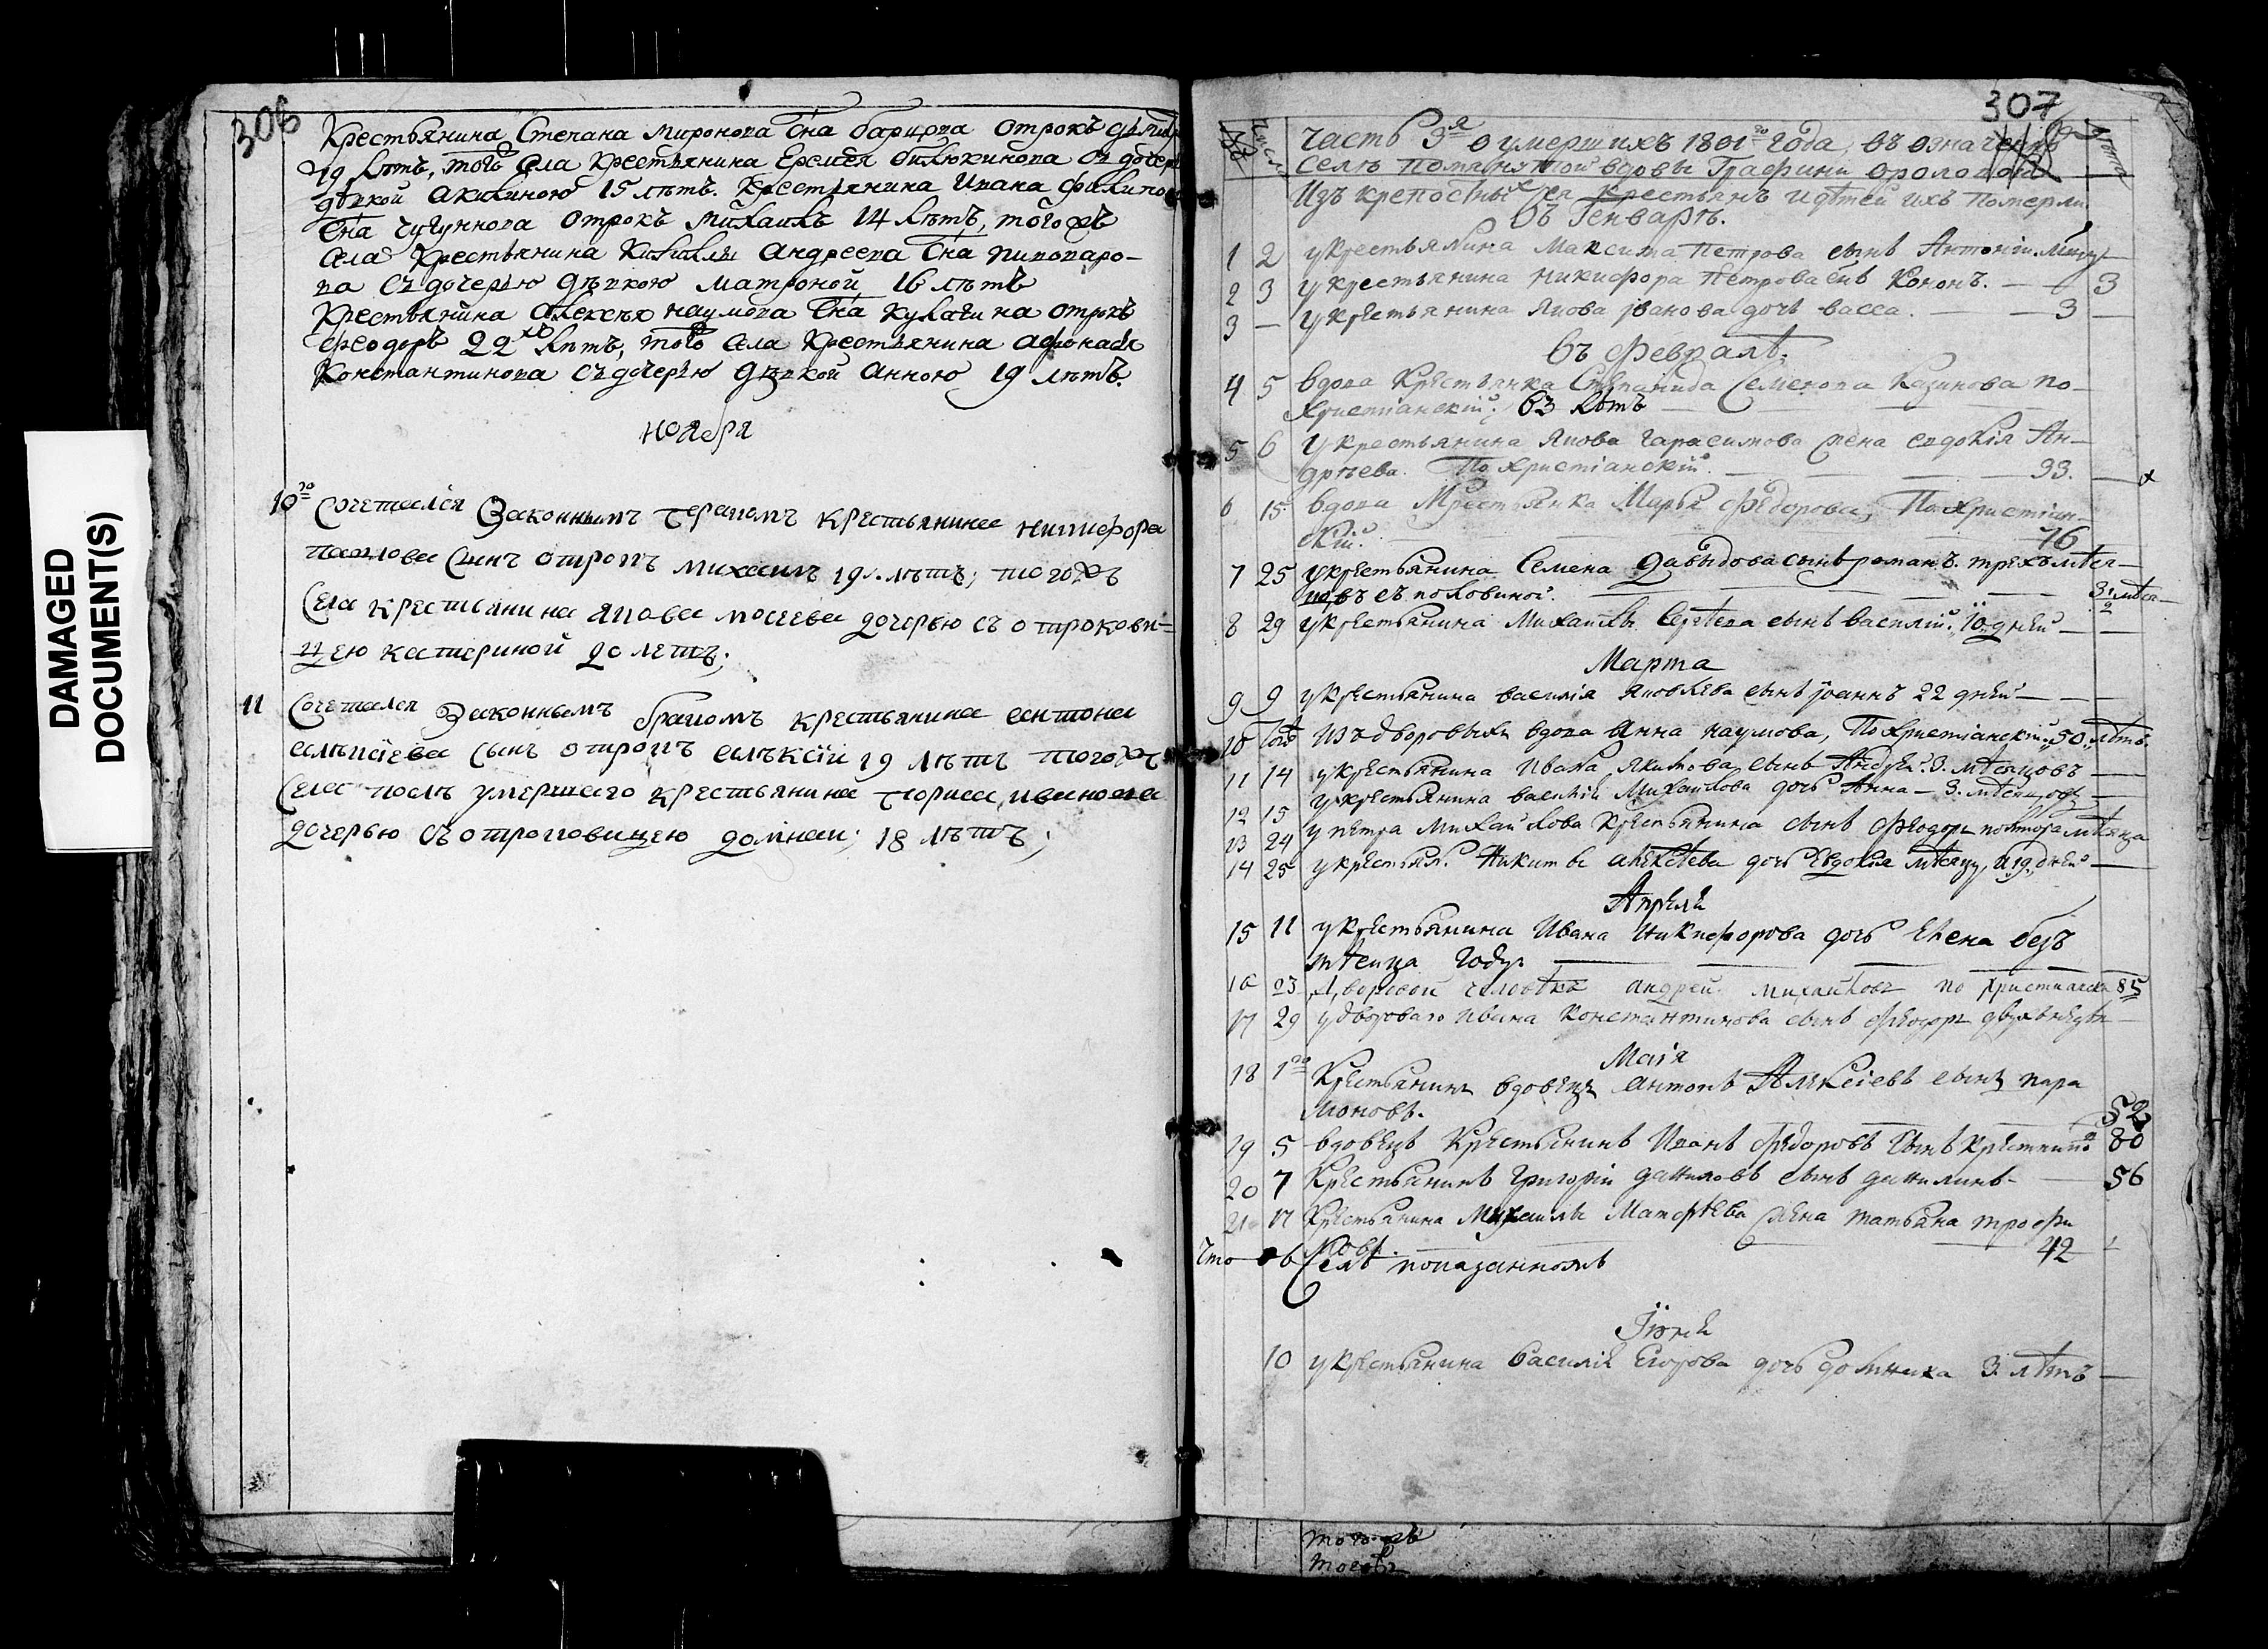 DAMAGED
DOCUMENT(S)
306
Крестьянина Степана миронова сна отрокъ
19 лѣтъ, того села Крестьянина Еремея съ дочерью
дѣвкой акилиною 15 лѣтъ. Крестьянина Ивана
сна чугуннова отрокъ михаилъ 14 лѣтъ, того жъ
села Крестьянина андреева сна пивоваро-
ва съ дочерью дѣвкою матроной 16 лѣтъ
Крестьянина алексѣя наумова сна кулагина отрокъ
феодоръ 22хъ лѣтъ, того села Крестьянина афонасія
Константинова съ дочерью дѣвкой анною 19 лѣтъ.
ноября
10го Сочетался Законнымъ бракомъ крестьянина никифора
павлова сынъ отрокъ михаилъ 19 лѣтъ; того жъ
села крестьянина якова дочерью съ отрокови-
цею катериной 20 летъ;
11 Сочетался Законнымъ бракомъ крестьянина антона
алѣксіева сынъ отрокъ алѣксій 19 лѣтъ того жъ
села послѣ умершаго крестьянина иванова
дочерью съ отроковицею домнаи; 18 лѣтъ;
307
часть 3я о умершихъ 1801го года, въ означенномъ
селѣ вдовы Графини орловой
Изъ крепостныхъ ея крестьянъ и дѣтей ихъ померли.
Въ Генварѣ.
1 2 у крестьянина Максима Петрова сынъ Антоній
2 3 у крестьянина никифора Петрова снъ Кононъ. — 3
3 — у крестьянина Якова јванова дочь васса. — 3
въ февралѣ.
4 5 вдова Крестьянка Степанида Семенова Казинова по-
христіанскій. 63 лѣтъ
5 6 У крестьянина Якова гарасимова жена евдокія Ан-
дрѣева. По христіанскій. — 93.
6 15 вдова Крестьянка Марья Федорова, По христіан-
скій. 76
7 25 у крестьянина Семена Давыдова сынъ романъ. трехъ мѣся-
цовъ съ половиной. — 3 1/2 мѣся
8 29 у крестьянина Михайлы Сергѣева сынъ василій. 10 дней
Марта
9 9 у крестьянина василія яковлева сынъ јоаннъ 22 дней
10 10го Изъ дворовыхъ вдова Анна наумова, По христіанскій 50 лѣтъ.
11 14 у крестьянина Ивана Якимова сынъ Андрей. 3. мѣсяцовъ
12 15 у крестьянина василія Михайлова дочь Анна — 3. мѣсяцовъ
13 24 у петра михайлова крестьянина сынъ феодоръ полтора мѣсяца
14 25 у крестьян. Никиты алексѣева дочь Евдокія мѣсяцъ, и 19 дней
Апреля
15 11 у крестьянина Ивана Никифорова дочь елена безъ
мѣсяца году.
16 23 Дворовой человѣкъ андрей михайловъ по христиански 85
17 29 у двороваго ивана константинова сынъ феодоръ двухъ недѣль
Маія
18 1го Крестьянинъ вдовецъ антонъ Алексіевъ сынъ пара
моновъ. 52
19 5 вдовецъ Крестьянинъ Иванъ федоровъ сынъ 80
20 7 Крестьянинъ Григорій даниловъ сынъ данилинъ 56
21 17 Крестьянина Михаилы Матфѣева жена татьяна трофи
мова. 42
что въ селѣ показанномъ
Іюня
10 у крестьянина василія егорова дочь домника 3 лѣтъ
того жъ